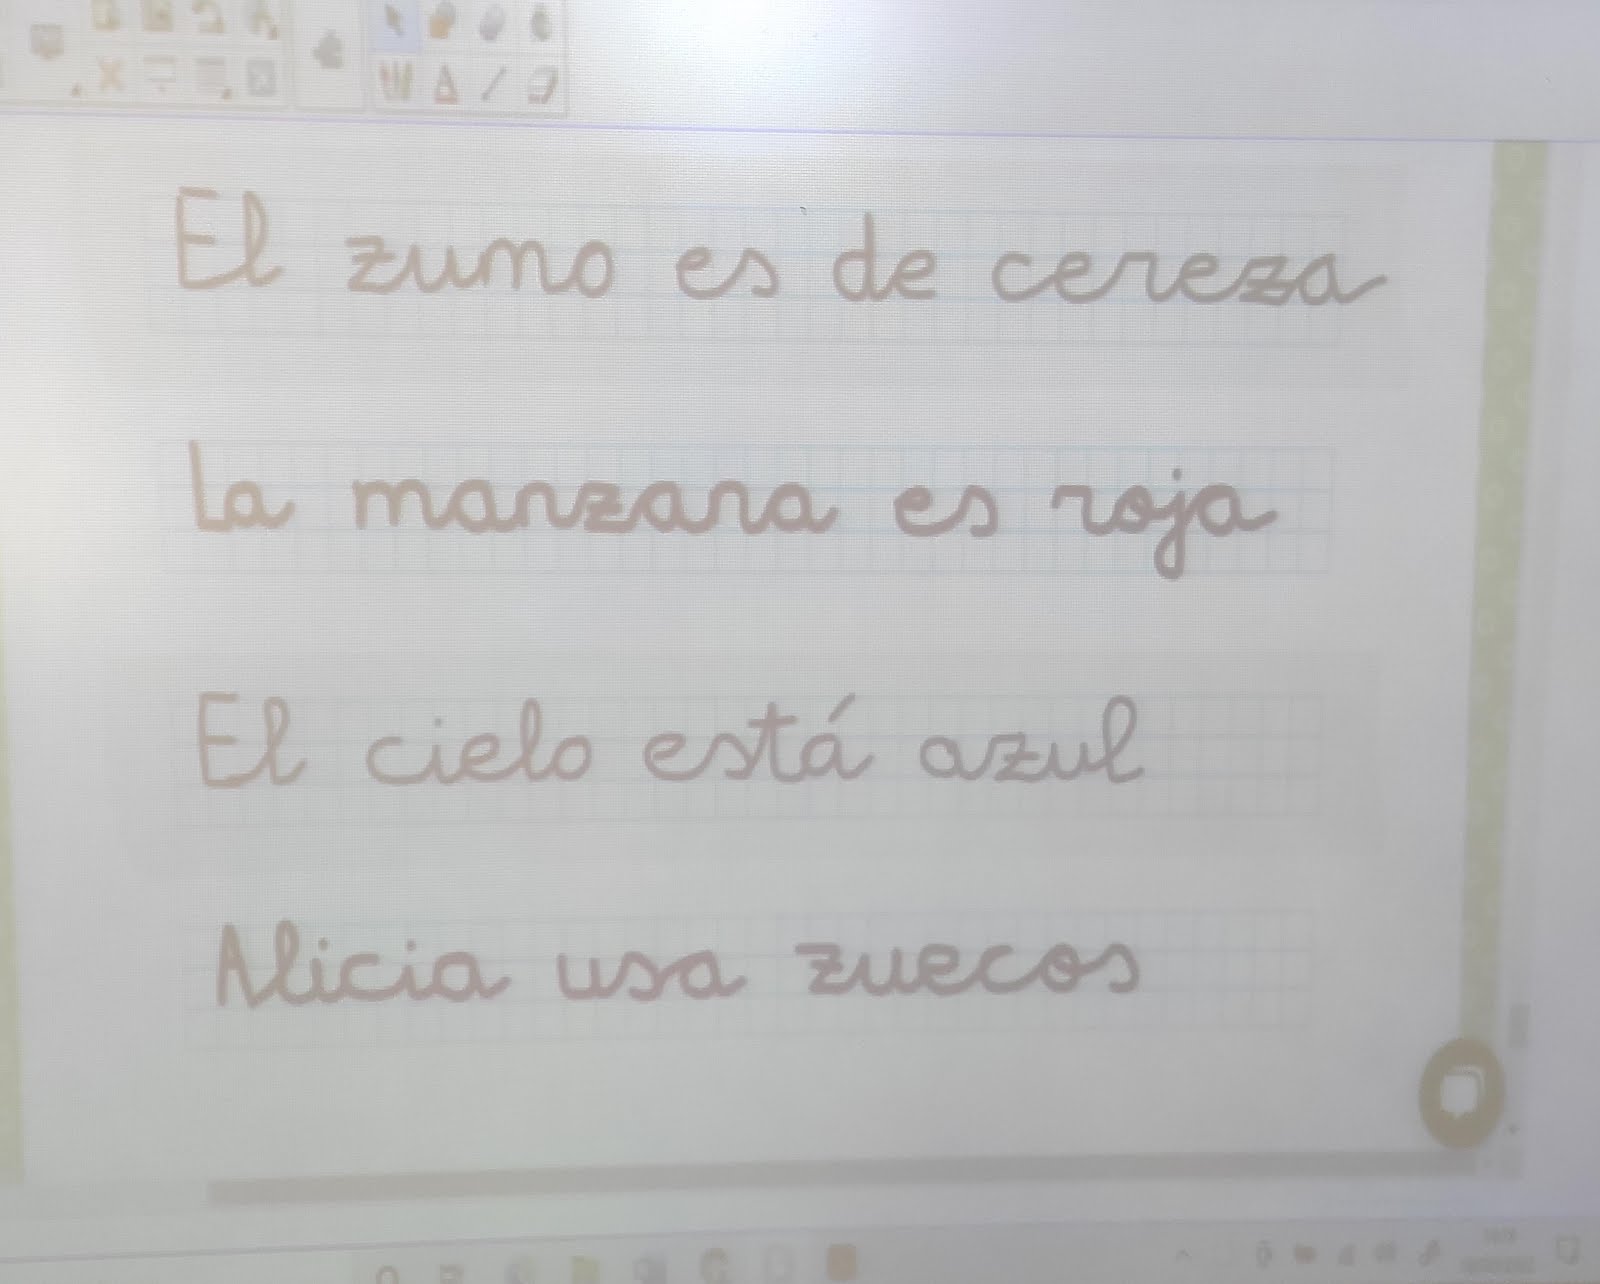 El zumo es de cereza
La manzana es roja
El cielo está azul
Alicia usa zuecos